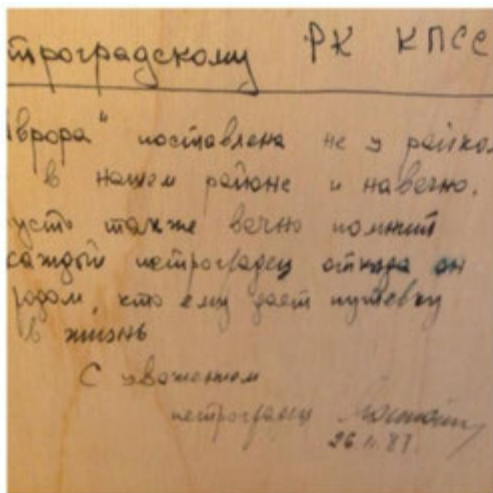 троградскому РК КПСС
Аврора" поставлена не у райком
в нашем районе и навечно.
усть также вечно помнит
каждый петроградец откуда он
родом, кто ему дает путевку
в жизнь
С уважением
петроградец
26.11.87.